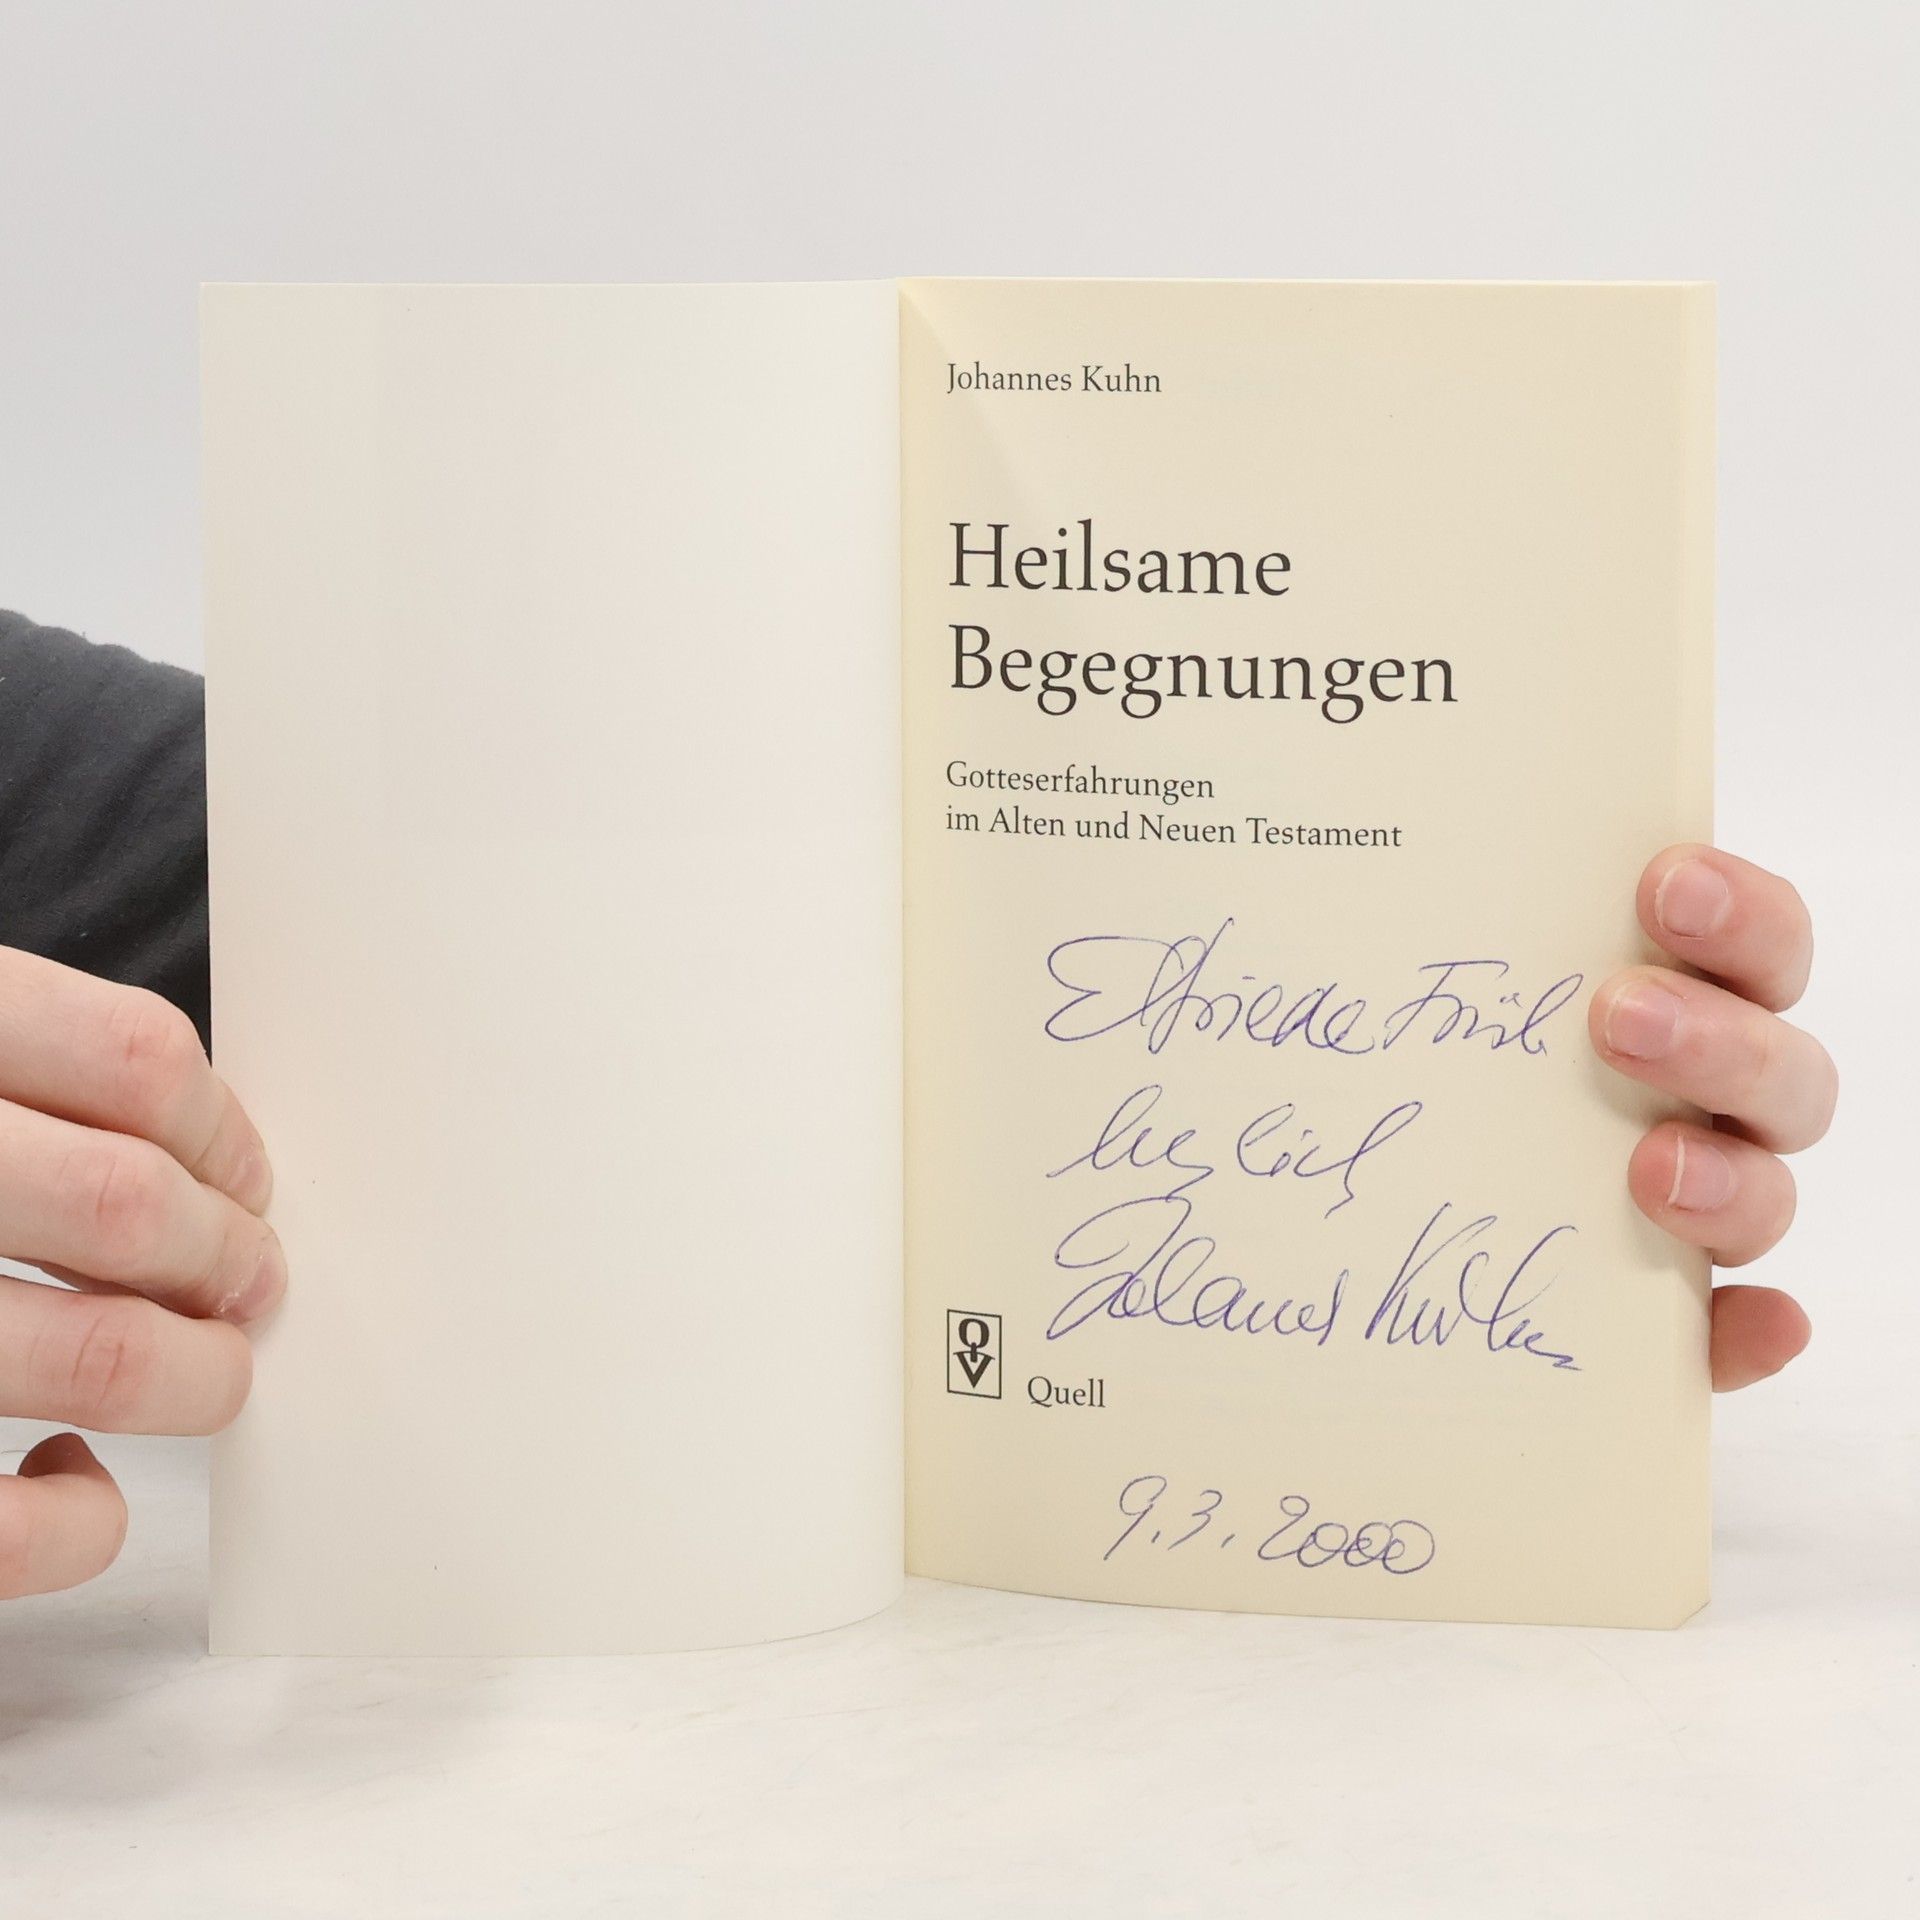 Johannes Kuhn
Heilsame
Begegnungen
Gotteserfahrungen
im Alten und Neuen Testament
Elfriede
herzlich
Johannes Kuhn
QV
Quell
9.3.2000